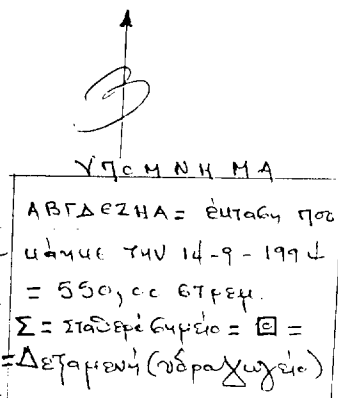 ΥΠΟΜΝΗΜΑ
ΑΒΓΔΕΖΗΑ = έκταση που
κάηκε την 14-9-1994
= 550,00 στρεμ.
Σ = Σταθερό σημείο = ⊡ =
= Δεξαμενή (υδραγωγείο)